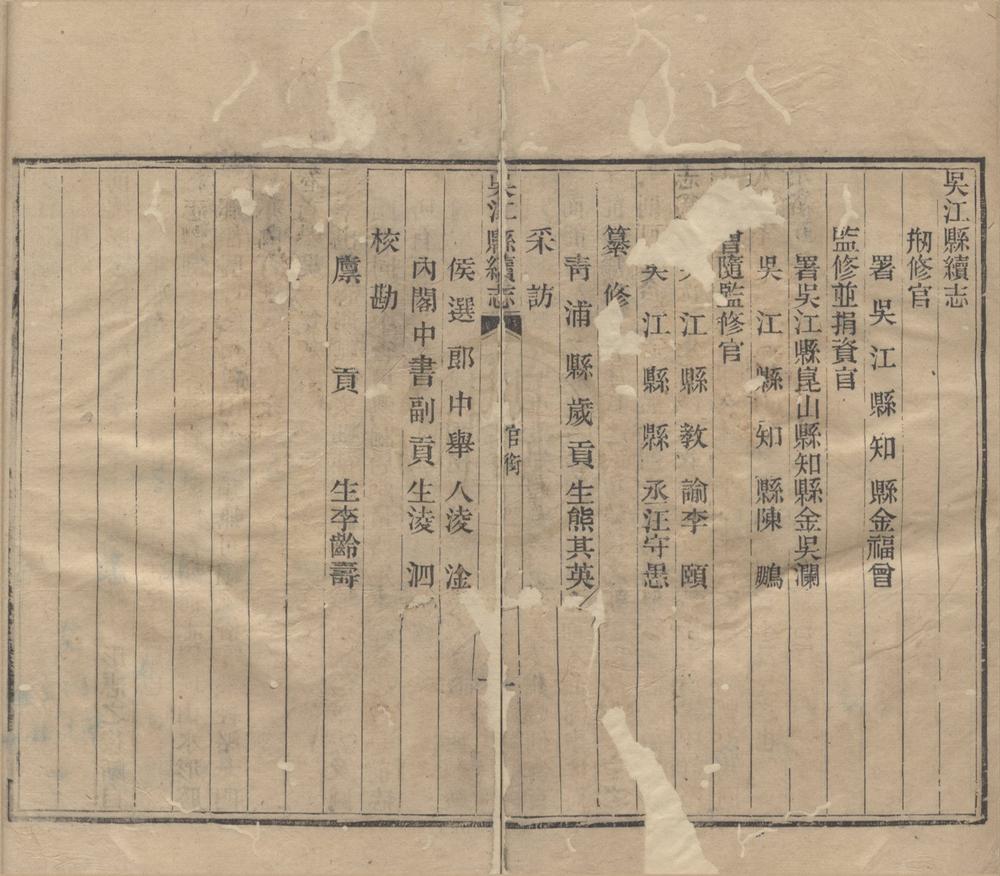 吳江縣續志
剏修官
署吳江縣知縣金福曾
監修並捐資官
署吳江縣崑山縣知縣金吳瀾
吳江縣知縣陳鵬
隨監修官
江縣教諭李頤
吳江縣縣丞汪守愚
纂修
靑浦縣歲貢生熊其英
吳江縣續志
官銜
一
采訪
侯選郎中舉人淩淦
內閣中書副貢生淩泗
校勘
廪貢生李齡壽